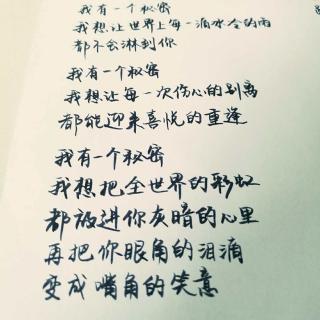 我有一个秘密
我想让世界上每一滴冰冷的雨
都不会淋到你
我有一个秘密
我想让每一次伤心的别离
都能迎来喜悦的重逢
我有一个秘密
我想把全世界的彩虹
都放进你灰暗的心里
再把你眼角的泪滴
变成嘴角的笑意